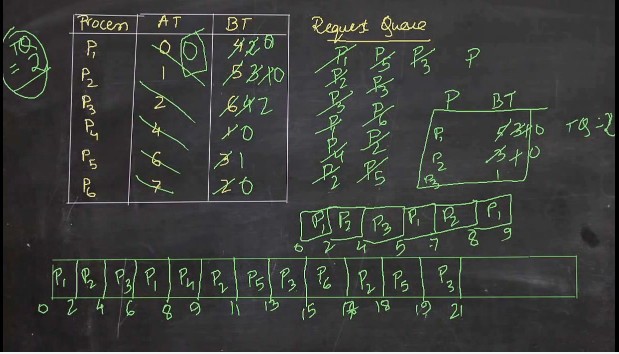 TQ = 2
Process AT BT
P1 0 0 4 2 0
P2 1 5 3 1 0
P3 2 6 4 2
P4 4 1 0
P5 6 3 1
P6 7 2 0
Request Queue
P1 P5 P3 P
P2 P3
P3 P6
P1 P2
P4 P5
P2
P BT
P1 5 3 1 0
P2 3 1 0
P3 1
TQ = 2
P1 P2 P3 P1 P2 P1
0 2 4 5 7 8 9
P1 P2 P3 P1 P4 P2 P5 P3 P6 P2 P5 P3
0 2 4 6 8 9 11 13 15 17 18 19 21